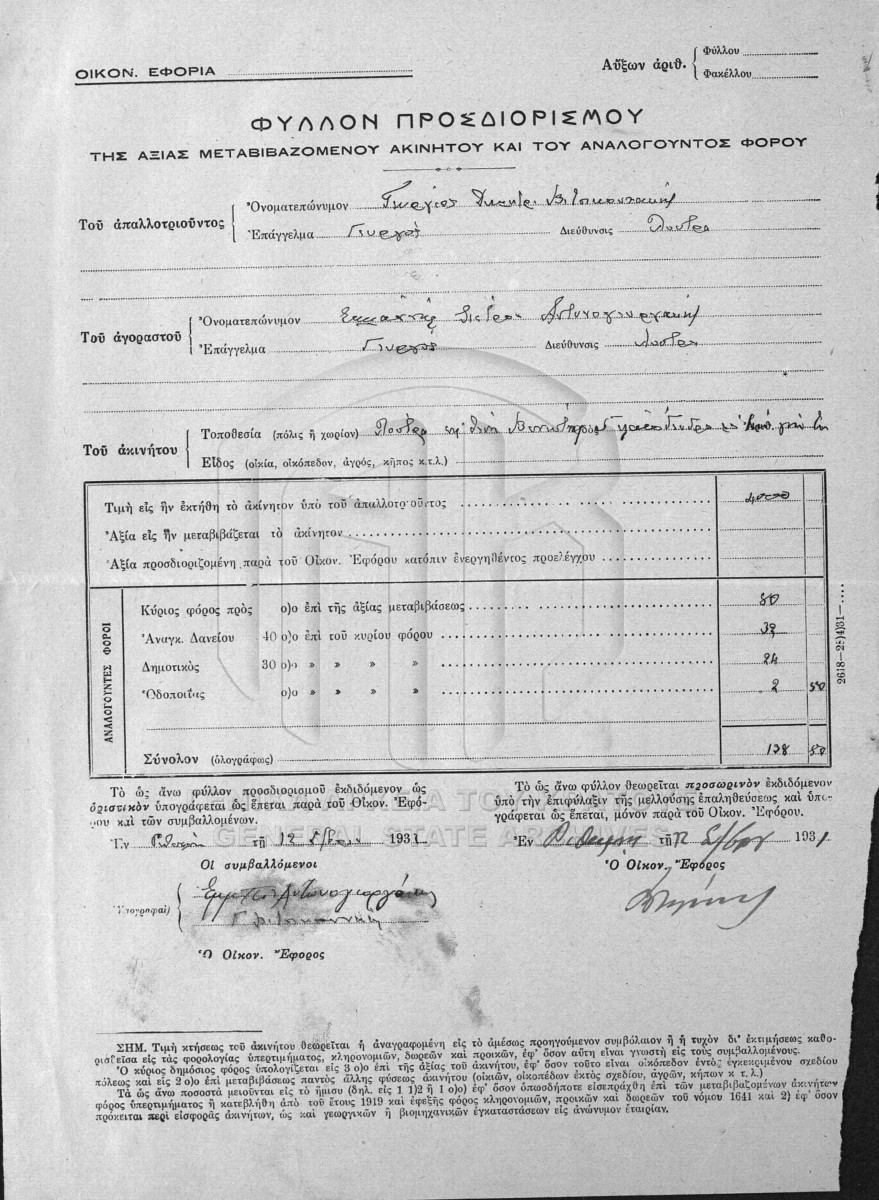 ΟΙΚΟΝ. ΕΦΟΡΙΑ
Αὔξων ἀριθ. { Φύλλου
Φακέλλου
ΦΥΛΛΟΝ ΠΡΟΣΔΙΟΡΙΣΜΟΥ
ΤΗΣ ΑΞΙΑΣ ΜΕΤΑΒΙΒΑΖΟΜΕΝΟΥ ΑΚΙΝΗΤΟΥ ΚΑΙ ΤΟΥ ΑΝΑΛΟΓΟΥΝΤΟΣ ΦΟΡΟΥ
Τοῦ ἀπαλλοτριοῦντος { Ὀνοματεπώνυμον Γεώργιος
Ἐπάγγελμα Γεωργός Διεύθυνσις
Τοῦ ἀγοραστοῦ { Ὀνοματεπώνυμον
Ἐπάγγελμα Γεωργός Διεύθυνσις
Τοῦ ἀκινήτου { Τοποθεσία (πόλις ἢ χωρίον)
Εἶδος (οἰκία, οἰκόπεδον, ἀγρός, κῆπος κ.τ.λ.)
Τιμὴ εἰς ἣν ἐκτήθη τὸ ἀκίνητον ὑπὸ τοῦ ἀπαλλοτριοῦντος 4000
Ἀξία εἰς ἣν μεταβιβάζεται τὸ ἀκίνητον
Ἀξία προσδιοριζομένη παρὰ τοῦ Οἰκον. Ἐφόρου κατόπιν ἐνεργηθέντος προελέγχου
ΑΝΑΛΟΓΟΥΝΤΕΣ ΦΟΡΟΙ
Κύριος φόρος πρὸς ο)ο ἐπὶ τῆς ἀξίας μεταβιβάσεως 80
Ἀναγκ. Δανείου 40 ο)ο ἐπὶ τοῦ κυρίου φόρου 32
Δημοτικὸς 30 ο)ο » » » » 24
Ὁδοποιΐας ο)ο » » » » 2 50
Σύνολον (ὁλογράφως) 138 50
2618—28)4)31—....
Τὸ ὡς ἄνω φύλλον προσδιορισμοῦ ἐκδιδόμενον ὡς
ὁριστικὸν ὑπογράφεται ὡς ἕπεται παρὰ τοῦ Οἰκον. Ἐφό-
ρου καὶ τῶν συμβαλλομένων.
Ἐν τῇ 12 1931
Οἱ συμβαλλόμενοι
Ὑπογραφαὶ) Ἀντωνογιωργάκης
Ὁ Οἰκον. Ἔφορος
Τὸ ὡς ἄνω φύλλον θεωρεῖται προσωρινὸν ἐκδιδόμενον
ὑπὸ τὴν ἐπιφύλαξιν τῆς μελλούσης ἐπαληθεύσεως καὶ ὑπο-
γράφεται ὡς ἕπεται, μόνον παρὰ τοῦ Οἰκον. Ἐφόρου.
Ἐν τῇ 12 1931
Ὁ Οἰκον. Ἔφορος
GENERAL STATE ARCHIVES
ΣΗΜ. Τιμὴ κτήσεως τοῦ ἀκινήτου θεωρεῖται ἡ ἀναγραφομένη εἰς τὸ ἀμέσως προηγούμενον συμβόλαιον ἢ ἡ τυχὸν δι' ἐκτιμήσεως καθο-
ρισθεῖσα εἰς τὰς φορολογίας ὑπερτιμήματος, κληρονομιῶν, δωρεῶν καὶ προικῶν, ἐφ' ὅσον αὕτη εἶναι γνωστὴ εἰς τοὺς συμβαλλομένους.
Ὁ κύριος δημόσιος φόρος ὑπολογίζεται εἰς 3 ο)ο ἐπὶ τῆς ἀξίας τοῦ ἀκινήτου, ἐφ' ὅσον τοῦτο εἶναι οἰκόπεδον ἐντὸς ἐγκεκριμένου σχεδίου
πόλεως καὶ εἰς 2 ο)ο ἐπὶ μεταβιβάσεως παντὸς ἄλλης φύσεως ἀκινήτου (οἰκιῶν, οἰκοπέδου ἐκτὸς σχεδίου, ἀγρῶν, κήπων κ τ. λ.)
Τὰ ὡς ἄνω ποσοστὰ μειοῦνται εἰς τὸ ἥμισυ (δηλ. εἰς 1 1)2 ἢ 1 ο)ο) ἐφ' ὅσον ὁπωσδήποτε εἰσεπράχθη ἐπὶ τῶν μεταβιβαζομένων ἀκινήτων
φόρος ὑπερτιμήματος ἢ κατεβλήθη ἀπὸ τοῦ ἔτους 1919 καὶ ἐφεξῆς φόρος κληρονομιῶν, προικῶν καὶ δωρεῶν τοῦ νόμου 1641 καὶ 2) ἐφ' ὅσον
πρόκειται περὶ εἰσφορᾶς ἀκινήτων, ὡς καὶ γεωργικῶν ἢ βιομηχανικῶν ἐγκαταστάσεων εἰς ἀνώνυμον ἑταιρίαν.